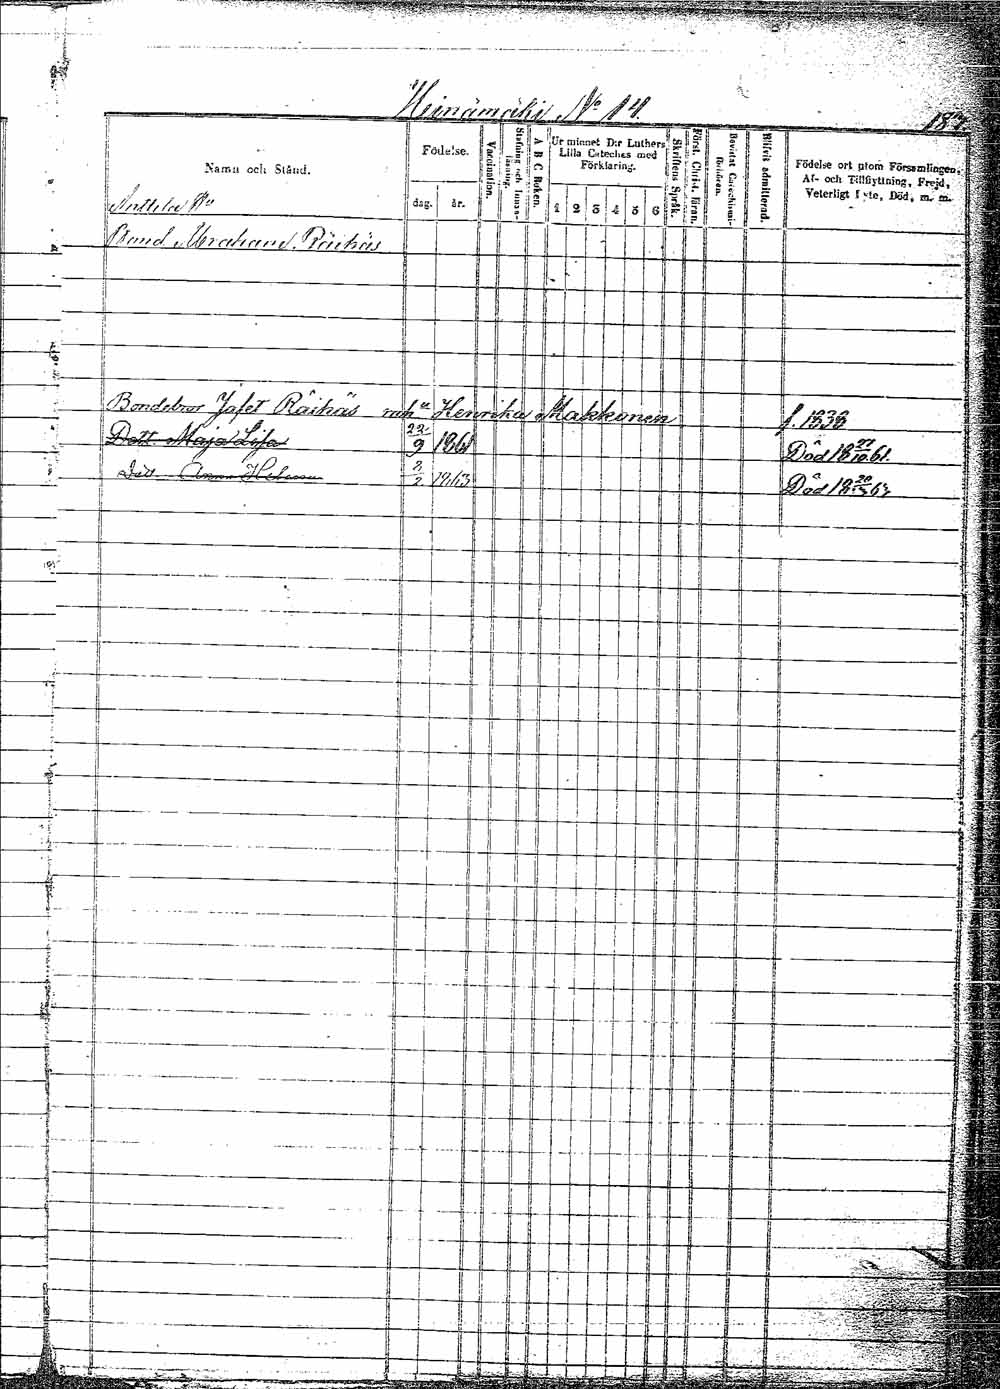 Heinämäki No 14.
187
Namn och Stånd.
Födelse.
dag.
år.
Vaccination.
Stafning och Innan-
läsning.
A B C Boken.
Ur minnet D:r Luthers
Lilla Cateches med
Förklaring.
1 2 3 4 5 6
Skriftens Språk.
Först. Christ. läran.
Bevistat Catechismi-
förhören.
Blifvit admitterad.
Födelse ort utom Församlingen,
Af- och Tillflyttning, Frejd,
Veterligt Lyte, Död, m. m.
Bond. Abraham Räihäs
Bondebror Jafet Räihäs och Henrika Makkonen f. 1838
Dott. Maja Lisa 22/9 1861 Död 18 27/10 61.
Dött. Anna Helena 2/2 1863 Död 18 20 63